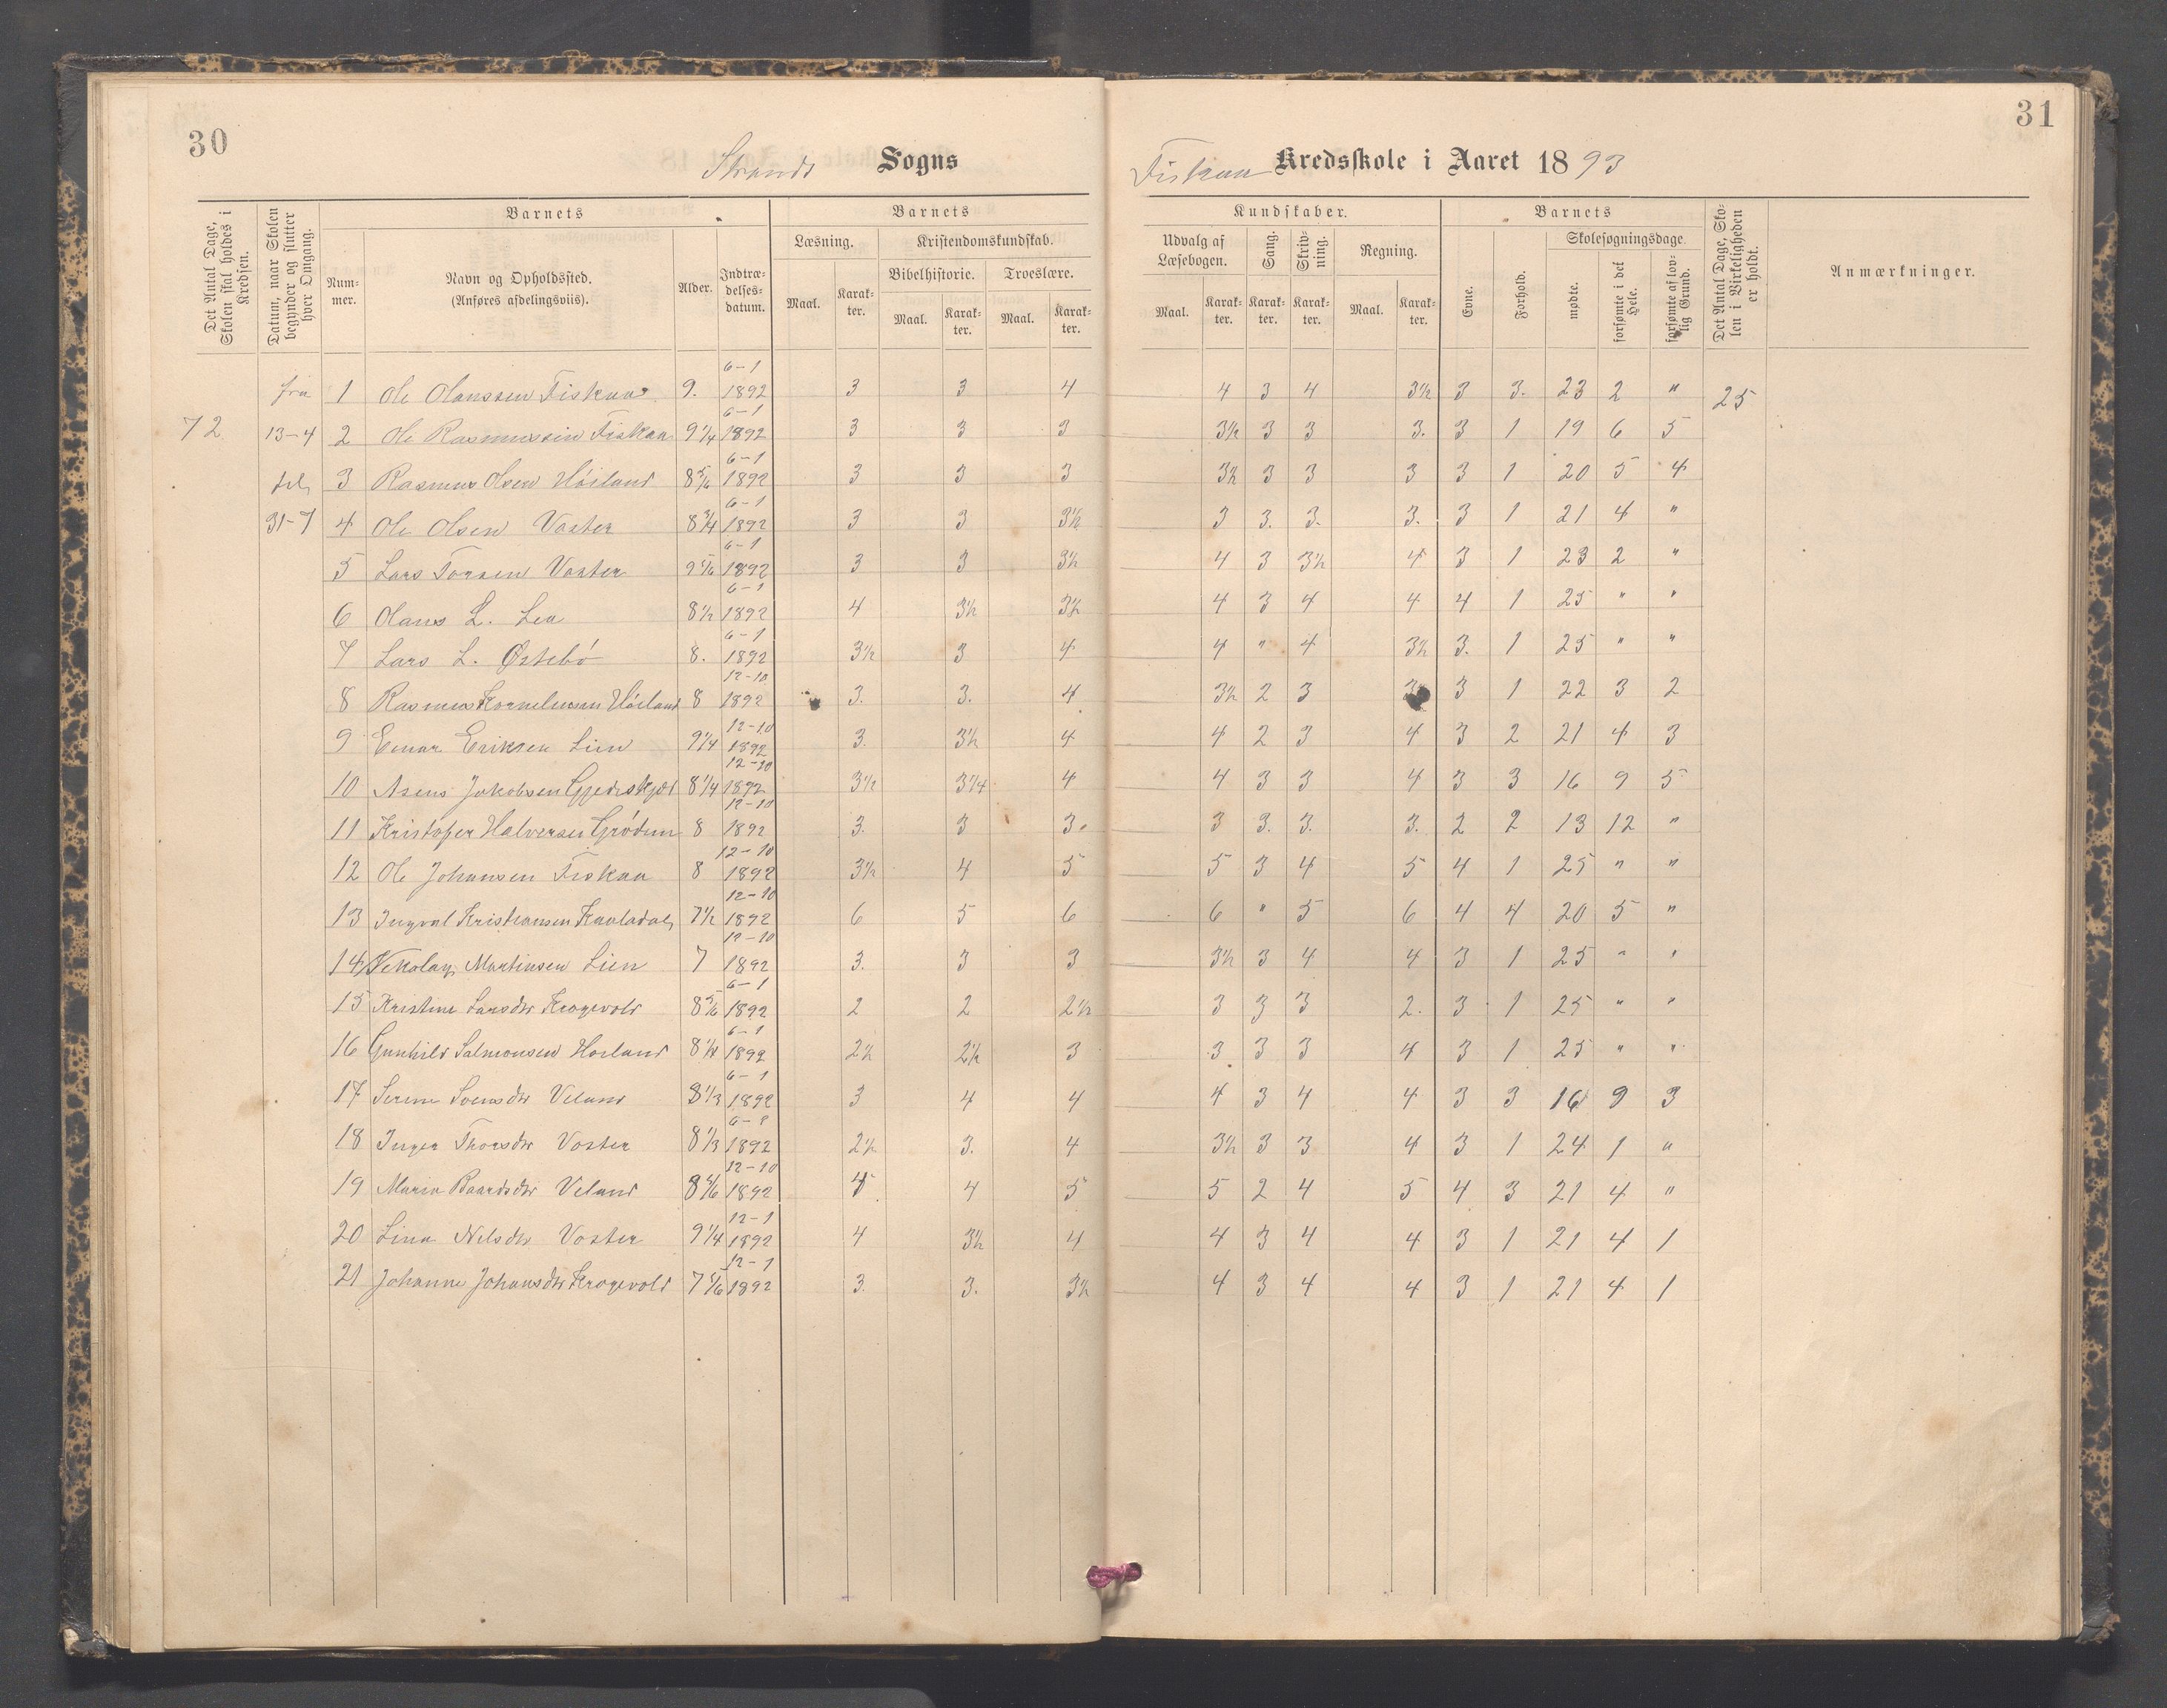 30
31
Strands Sogns
Fiskaa Kredsskole i Aaret 1893
Det Antal Dage, Skolen skal holdes i Kredsen.
Datum, naar Skolen begynder og slutter hver Omgang.
Barnets
Num-mer.
Navn og Opholdssted.
(Anføres afdelingsviis).
Alder.
Indtræ-delses-datum.
Barnets
Læsning.
Kristendomskundskab.
Bibelhistorie.
Troeslære.
Maal. Karak-ter. Maal. Karak-ter. Maal. Karak-ter.
Kundskaber.
Udvalg af Læsebogen.
Sang.
Skriv-ning.
Regning.
Maal. Karak-ter. Karak-ter. Karak-ter. Maal. Karak-ter.
Barnets
Evne.
Forhold.
Skolesøgningsdage.
mødte.
forsømte i det Hele.
forsømte af lov-lig Grund.
Det Antal Dage, Sko-len i Virkeligheden er holdt.
Anmærkninger.
fra 1 Ole Olanssen Fiskaa 9. 6-1 1892 3 3 4 4 3 4 3½ 3 3. 23 2 " 25
72 13-4 2 Ole Rasmussein Fiskaa 9¼ 6-1 1892 3 3 3 3½ 3 3 3. 3 1 19 6 5
til 3 Rasmus Olsen Høiland 8 5/6 6-1 1892 3 3 3 3½ 3 3 3 3 1 20 5 4
31-7 4 Ole Olsen Voster 8¾ 6-1 1892 3 3 3½ 3 3. 3. 3. 3 1 21 4 "
5 Lars Torsen Voster 9 5/6 6-1 1892 3 3 3½ 4 3 3½ 4 3 1 23 2 "
6 Olaus L. Lea 8½ 6-1 1892 4 3½ 3½ 4 3 4 4 4 1 25 " "
7 Lars L. Østebó 8. 6-1 1892 3½ 3 4 4 " 4 3½ 3. 1 25 " "
8 Rasmus Korneliussen Høiland 8 12-10 1892 3. 3. 4 3½ 2 3 3 1 22 3 2
9 Einar Eriksen Lien 9¼ 12-10 1892 3. 3½ 4 4 2 3 4 3 2 21 4 3
10 Asens Jakobsen 8¼ 12-10 1892 3½ 3¼ 4 4 3 3 4 3 3 16 9 5
11 Kristofer Halversen Gródem 8 12-10 1892 3. 3 3. 3 3. 3. 3. 2 2 13 12 "
12 Ole Johansen Fiskaa 8 12-10 1892 3½ 4 5 5 3 4 5 4 1 25 " "
13 Ingval Kristiansen 7½ 12-10 1892 6 5 6 6 " 5 6 4 4 20 5 "
14 Nekolay Martinsen Lien 7 12-10 1892 3. 3 3 3½ 3 4 4 3 1 25 " "
15 Kristine Larsdtr Krogevold 8 5/6 6-1 1892 2 2 2½ 3 3 3 2. 3 1 25 " "
16 Gunhild Salmonsen Hoiland 8¼ 6-1 1892 2½ 2½ 3 3 3 3 4 3 1 25 " "
17 Serine Svensdtr Veland 8⅓ 6-1 1892 3 4 4 4 3 4 4 3 3 16 9 3
18 Inger Thorsdtr Voster 8⅓ 1892 2½ 3. 4 3½ 3 3 4 3 1 24 1 "
19 Maria Baardsdtr Veland 8 5/6 12-10 1892 4 5 5 2 4 5 4 3 21 4 "
20 Lina Nilsdtr Voster 9¼ 12-1 1892 4 3½ 4 4 3 4 4 3 1 21 4 1
21 Johanne Johansdtr Krogevold 7 5/6 12-1 1892 3. 3. 3½ 4 3 4 4 3 1 21 4 1